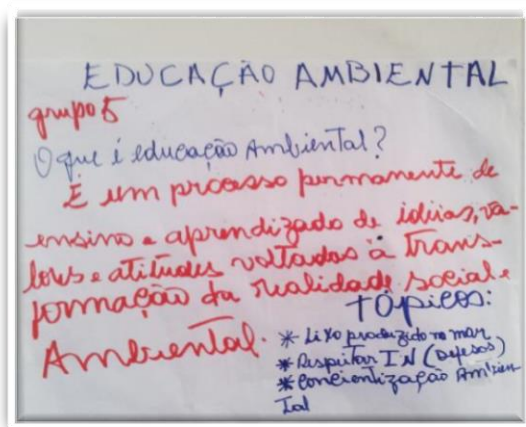 EDUCAÇÃO AMBIENTAL
grupo 5
O que é educação Ambiental?
É um processo permanente de
ensino e aprendizado de idéias, va-
lores e atitudes voltados à trans-
formação da realidade social e
Ambiental.
TÓPICOS:
* Lixo produzido no mar
* Respeitar IN (Defesos)
* Concientização Ambien
tal